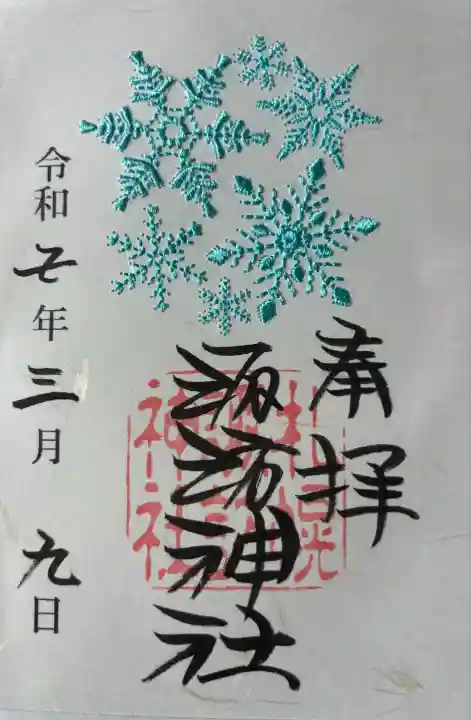 奉拝
諏訪神社
札幌
諏訪
神社
令和七年三月九日